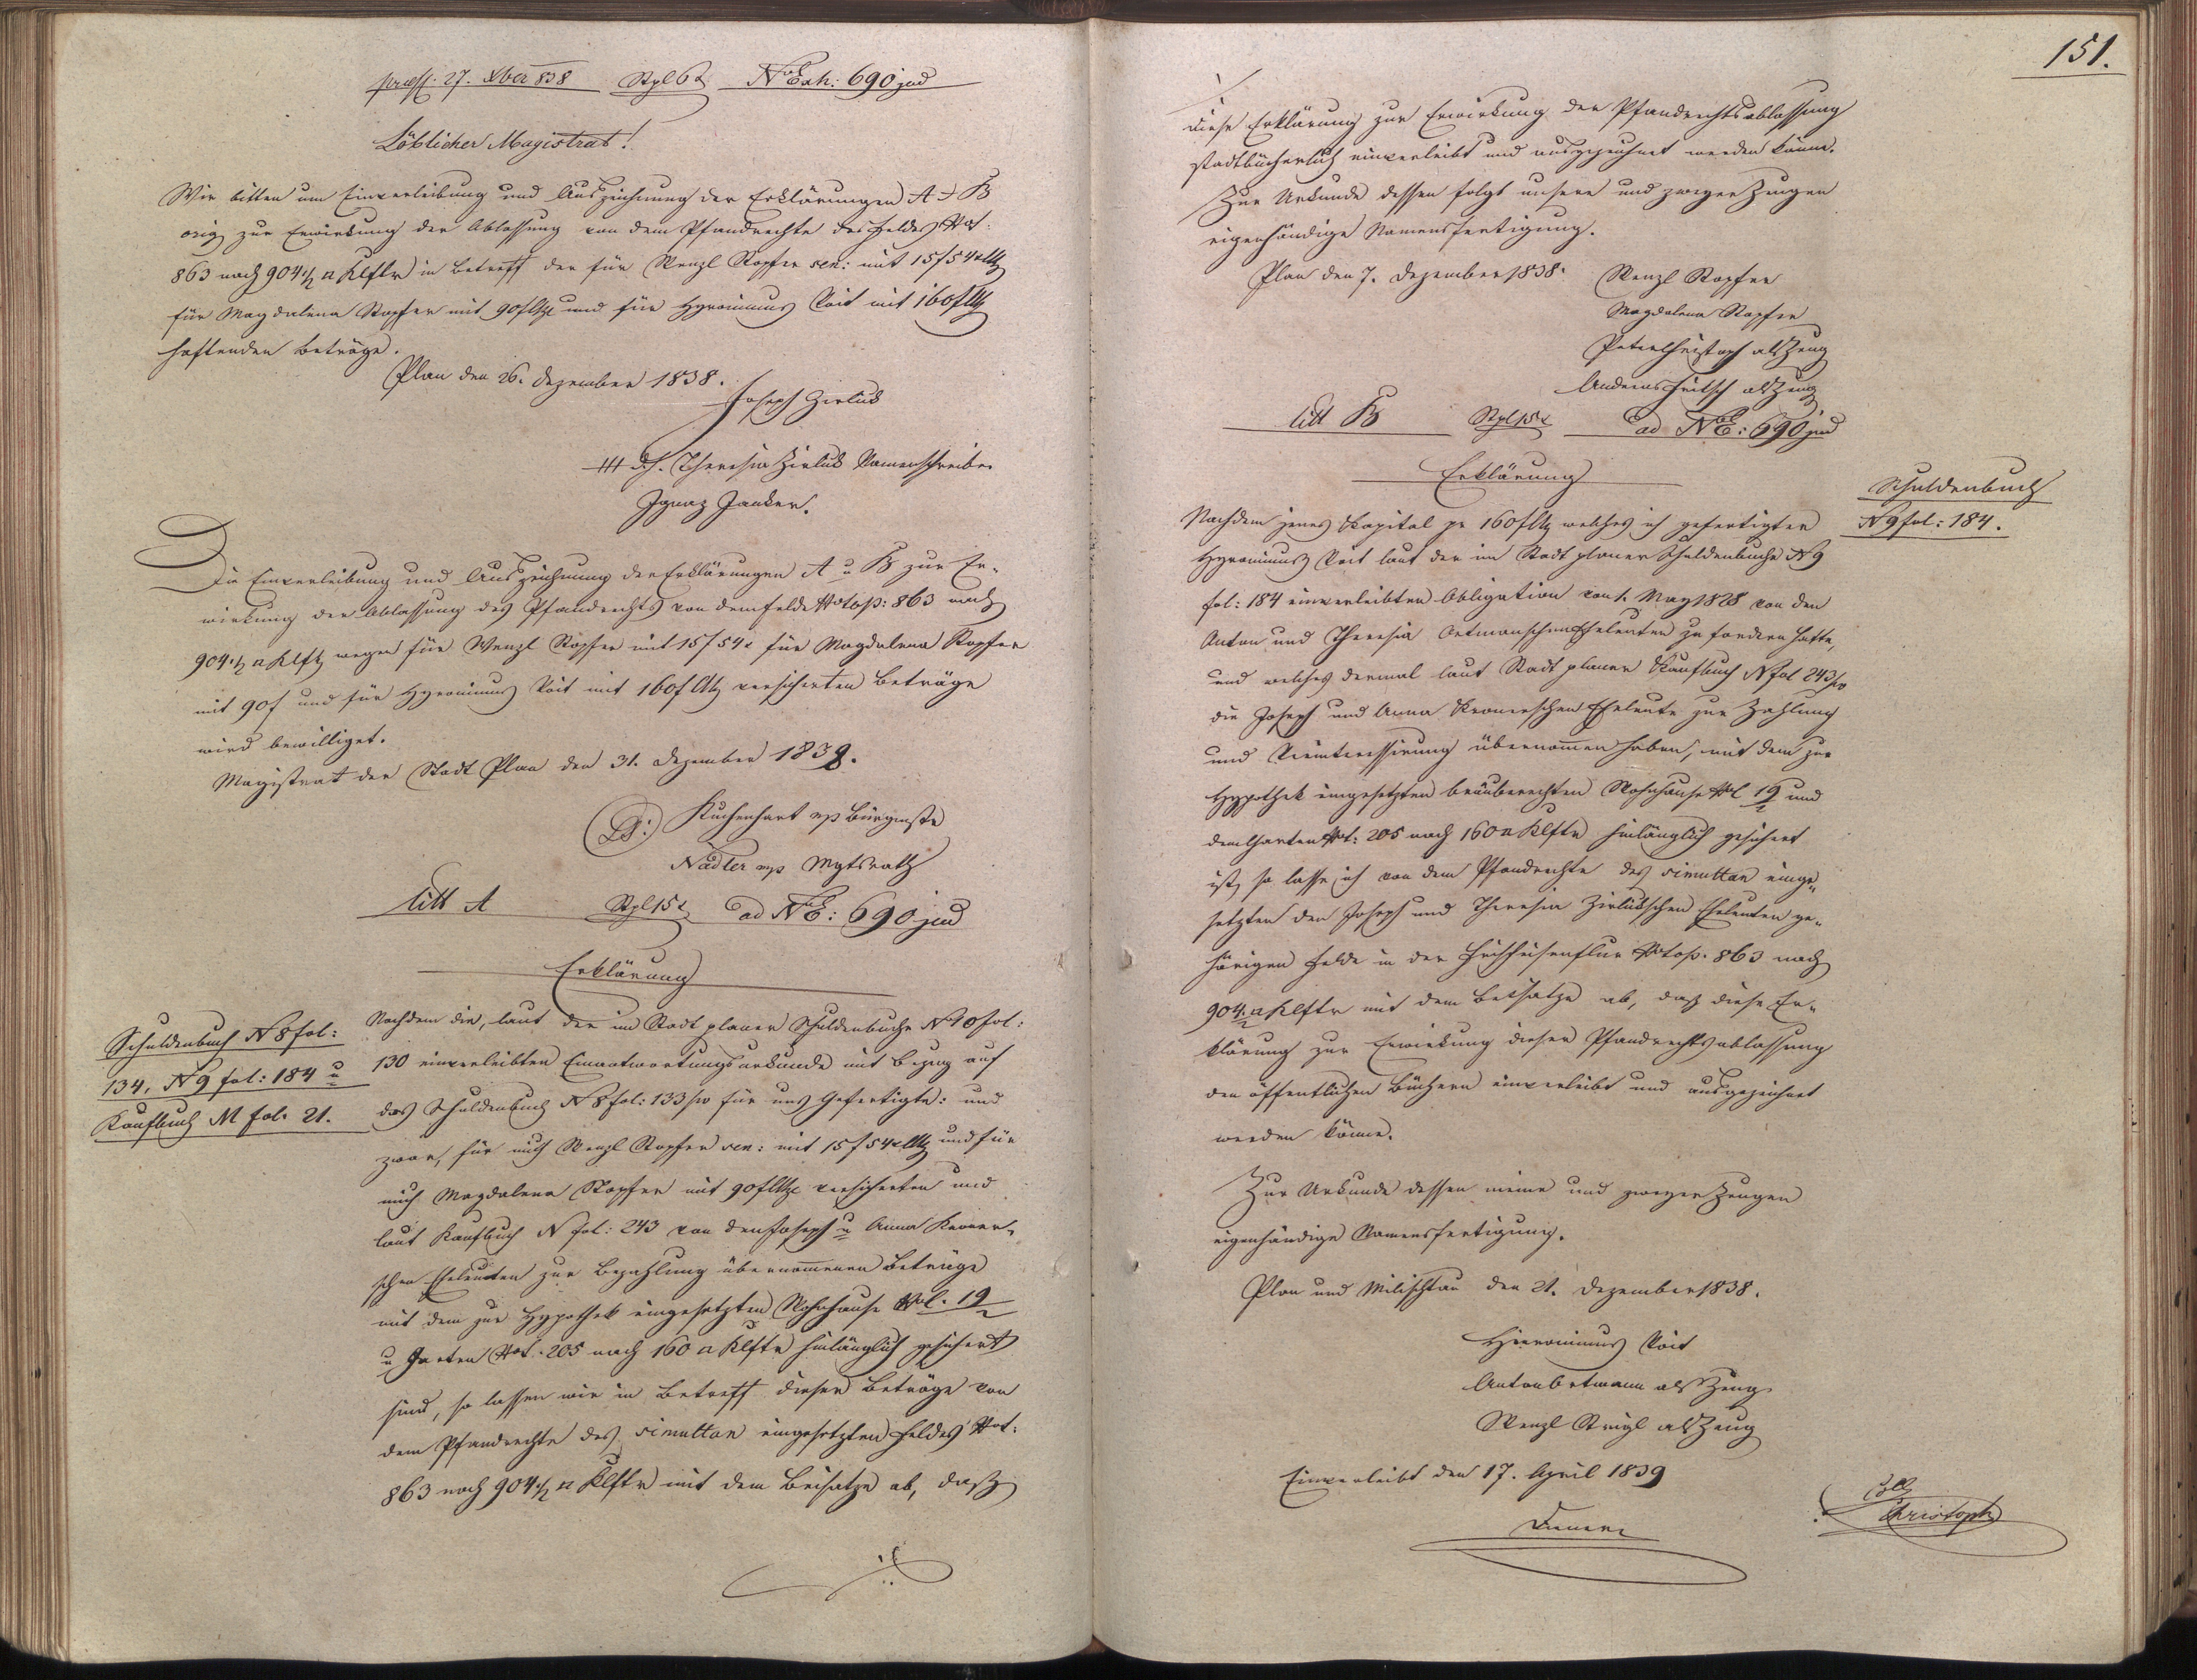 praess: 27. Xber 838 Stpl 6x N Exh: 690 jud
Löblicher Magistrat!
Wir bitten um Einverleibung und Auszeichnung der Erklärungen A & B
orig zur Erwirkung der Ablassung von dem Pfandrechte des Feldes Ntot:
863 nach 904 ½ □ Klftr in Betreff der für Wenzl Stopfer sen: mit 15 f 54 x CMz
für Magdalena Stopfer mit 90 f CMz und für Hyronimus Voit mit 160 f CMz
haftenden Beträge.
Plan den 26. Dezember 1838.
Joseph Zirlick
+++ dh. Theresia Zirlick Namenschreiber
Ignaz Janker.
Die Einverleibung und Auszeichnung der Erklärungen A u B zur Er-
wirkung der Ablassung des Pfandrechts von dem Felde Ntop: 863 nach
904 ½ □ Klft wegen für Wenzl Stopfer mit 15 f 54 x für Magdalena Stopfer
mit 90 f und für Hyronimus Voit mit 160 f CMz versicherten Beträge
wird bewilliget.
Magistrat der Stadt Plan den 31. Dezember 1838.
(LS:) Kuchenhart mp Bürgmstr
Nadler mp Mgtsrath
litt A Stpl 15 x ad NE: 690 jud
Erklärung
Schuldenbuch N 8 fol:
134, N 9 fol: 184 u
Kaufbuch M fol. 21.
Nachdem die, laut der im Stadt planer Schuldenbuche N 10 fol:
130 einverleibten Einantwortungsurkunde mit Bezug auf
das Schuldenbuch N 8 fol: 133 /vo für uns Gefertigte: und
zwar, für mich Wenzl Stopfer sen: mit 15 f 54 x CMz und für
mich Magdalena Stopfer mit 90 f CMze versicherten und
laut Kaufbuch N fol: 243 von den Joseph u Anna Kroner-
schen Eheleuten zur Bezahlung übernommenen Beträge
mit dem zur Hypothek eingesetzten Wohnhause Nol. 19
u Garten Ntot. 205 nach 160 □ Klftr hinlänglich gesichert
sind, so lassen wir in Betreff dieser Beträge von
dem Pfandrechte des simultan eingesetzten Feldes Ntot:
863 nach 904 ½ □ Klftr mit dem Beisatze ab, daß
151.
diese Erklärung zur Erwirkung der Pfandrechtsablassung
stadtbücherlich einverleibt und ausgezeichnet werden könne.
Zur Urkunde dessen folgt unsere und zweyer Zeugen
eigenhändige Namensfertigung.
Plan den 7. Dezember 1838. Wenzl Stopfer
Magdalena Stopfer
Peter Christoph als Zeug
Andreas Fritsch als Zeug
litt B Stpl 15 x ad NE: 690 jud
Erklärung
Schuldenbuch
N 9 fol: 184.
Nachdem jenes Kapital pr 160 f CMz welches ich gefertigter
Hyronimus Voit laut der im Stadt planer Schuldenbuche N 9
fol: 184 einverleibten Obligation von 1. May 1828 von den
Anton und Theresia Ortmannschen Eheleuten zu fordern hatte,
und welches dermal laut Stadt planer Kaufbuch N fol 243 /vo
die Joseph und Anna Kronerschen Eheleute zur Zahlung
und Verinteressirung übernommen haben, mit dem zur
Hypothek eingesetzten bräuberechten Wohnhause Nol 19 und
dem Garten Ntot: 205 nach 160 □ Klftr hinlänglich gesichert
ist, so lasse ich von dem Pfandrechte des simultan einge-
setzten den Joseph und Theresia Zirlickschen Eheleuten ge-
hörigen Felde in der Ntop. 863 nach
904 ½ □ Klftr mit dem Beisatze ab, daß diese Er-
klärung zur Erwirkung dieser Pfandrechtsablassung
den öffentlichen Büchern einverleibt und ausgezeichnet
werden könne.
Zur Urkunde dessen meine und zweyer Zeugen
eigenhändige Namensfertigung.
Plan und Militschau den 21. Dezember 1838.
Hieronimus Voit
Anton Ortmann als Zeug
Wenzl Strigl als Zeug
Einverleibt den 17. April 1839
Coll
Christoph